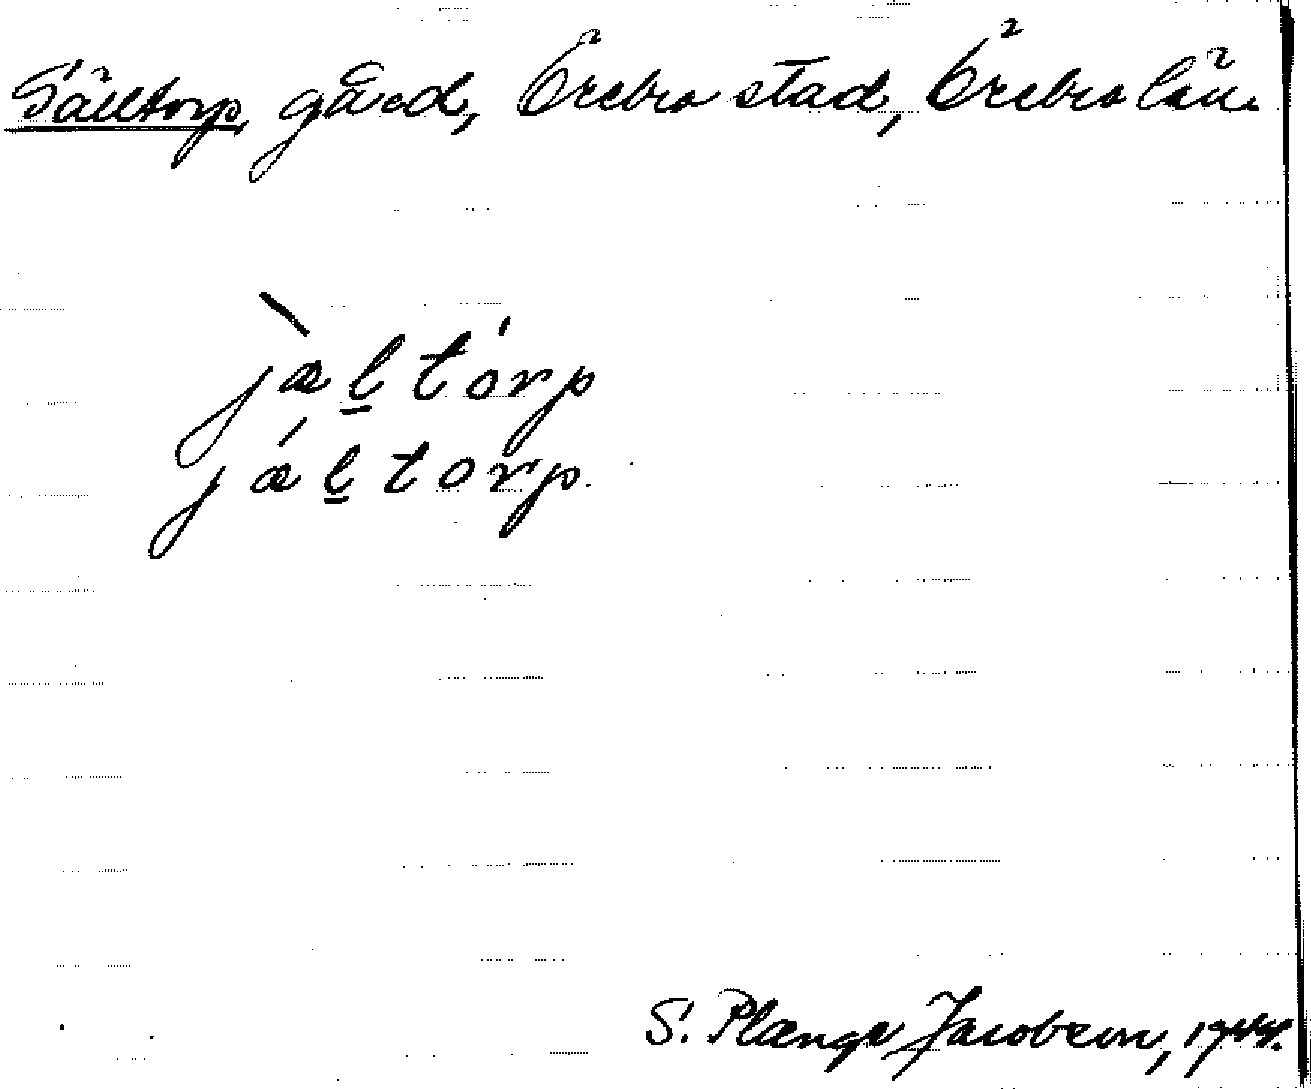 Sälltorp, gård, Örebro stad, Örebro län.
jæ̀l̲tórp
jǽl̲torp.
S. Plænge Jacobson, 1944.